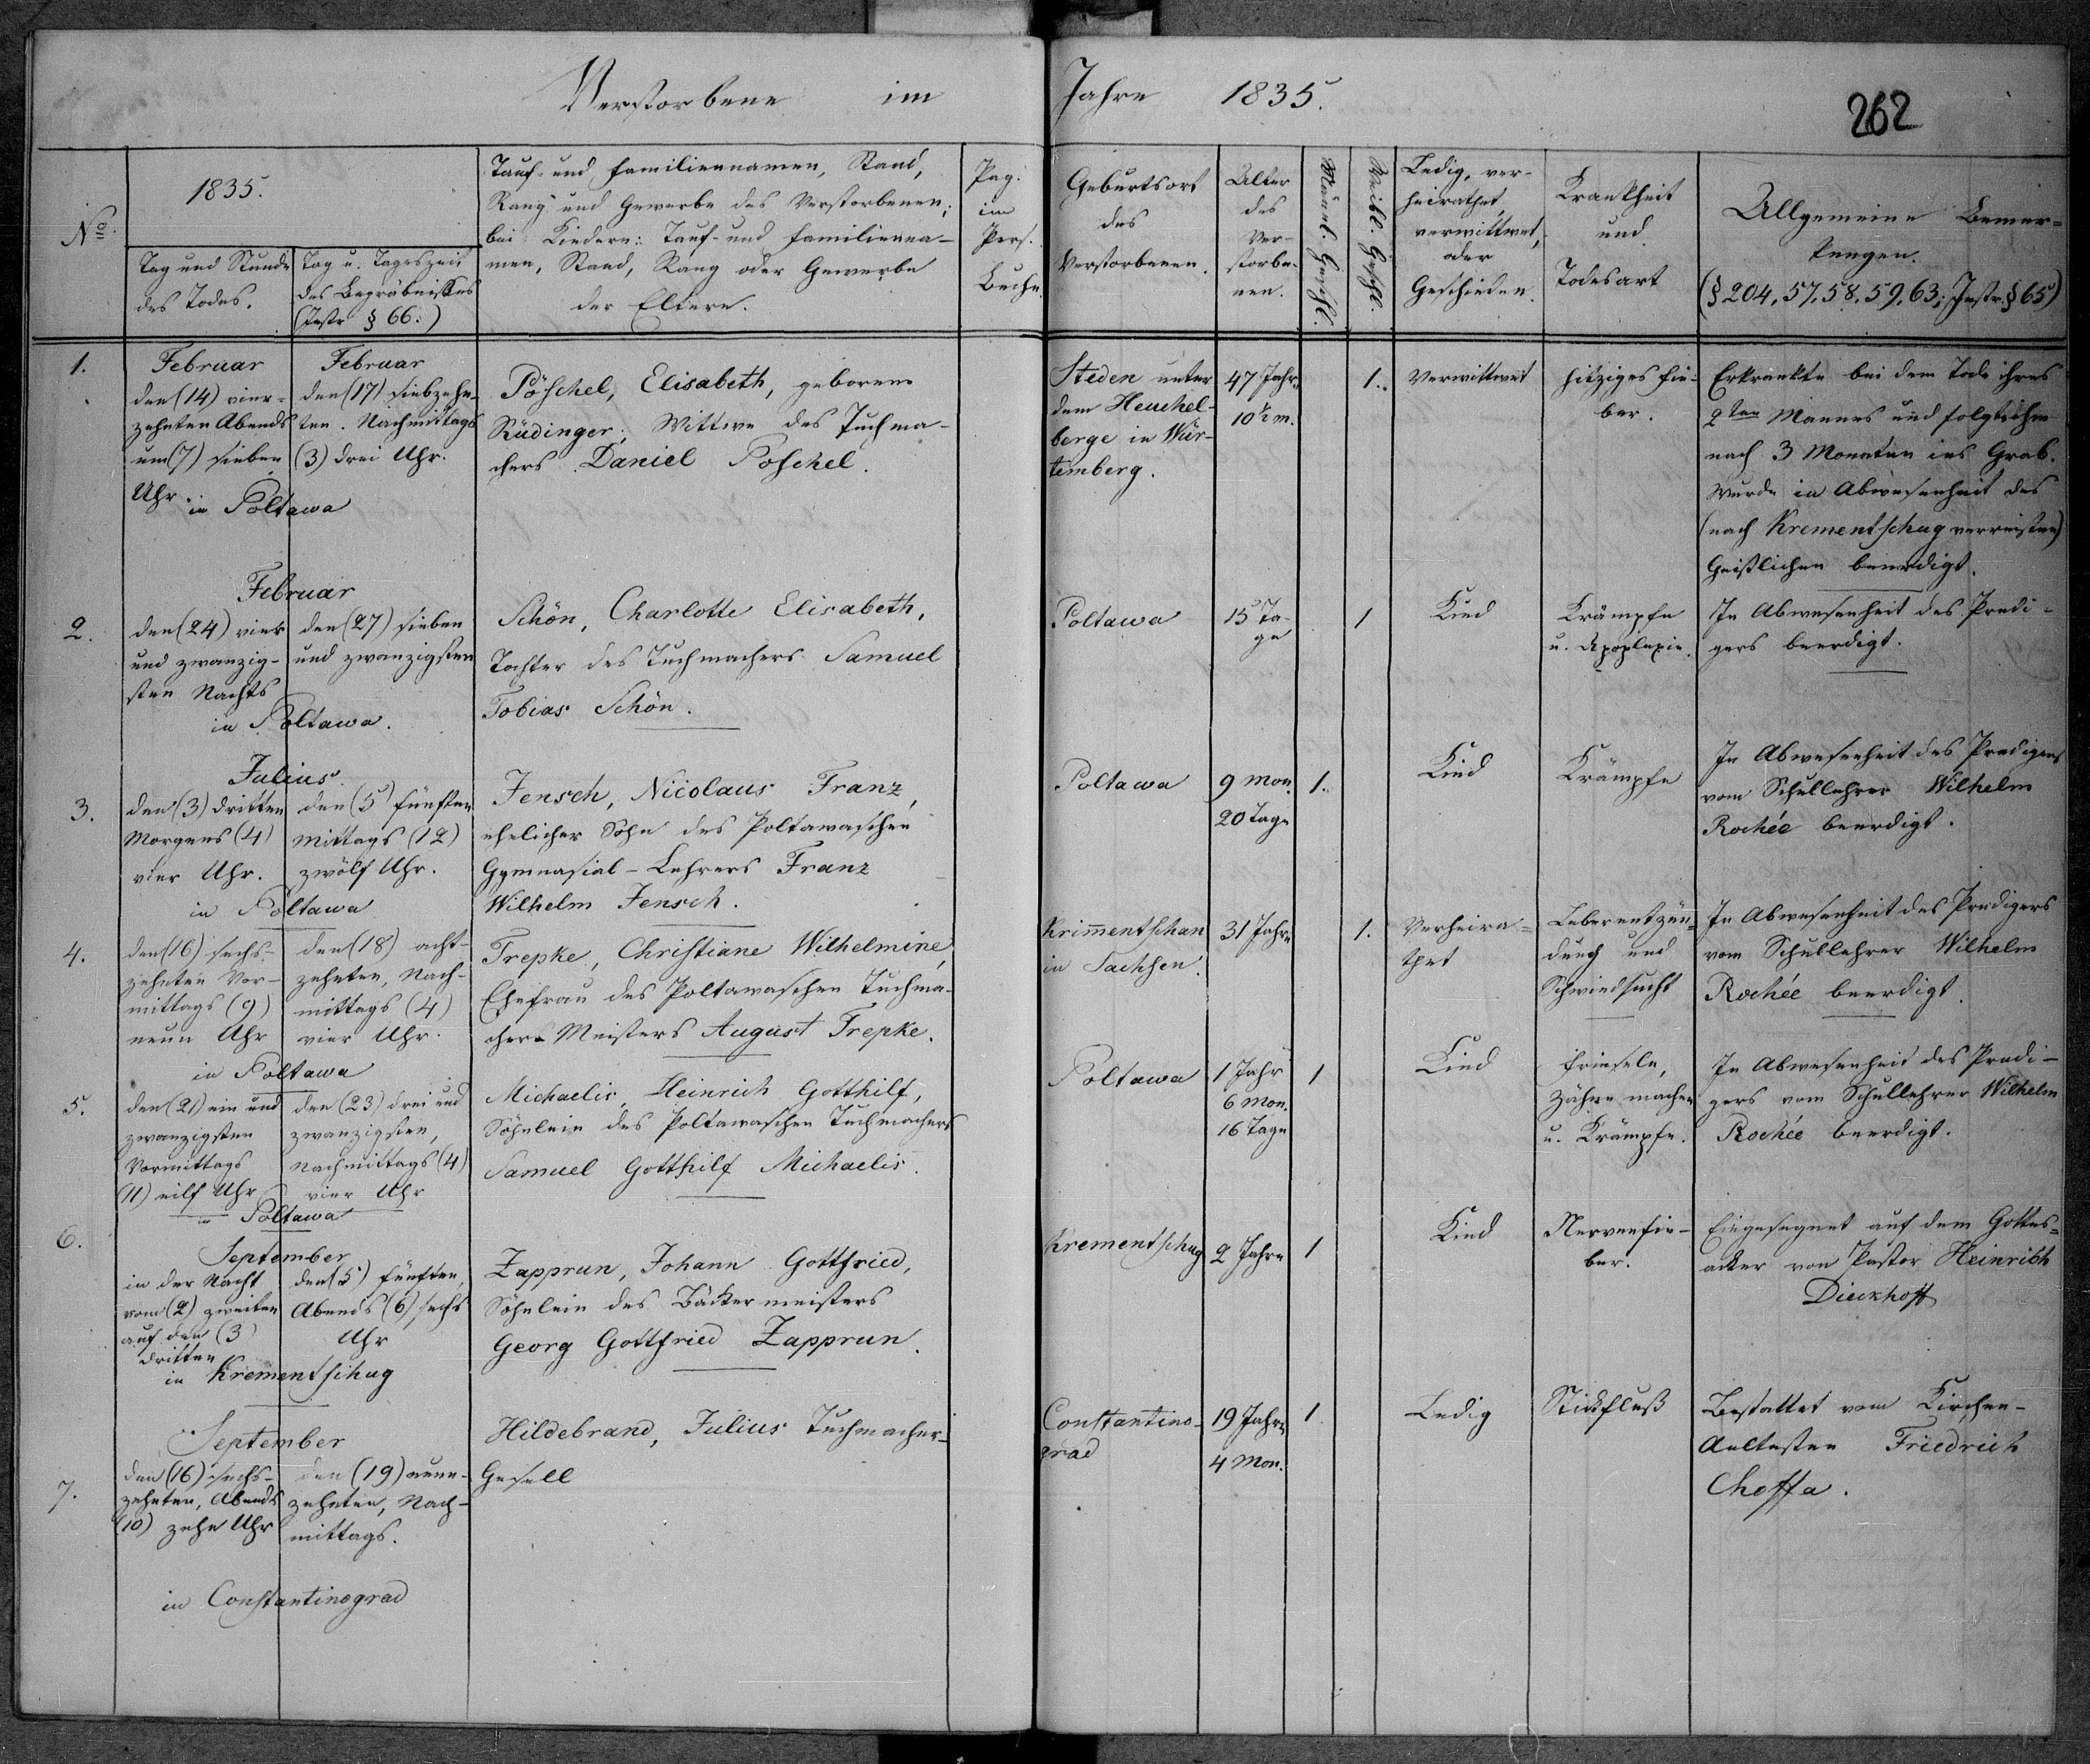 Verstorbene im Jahre 1835.
262
No.
1835.
Tag und Stunde
des Todes.
Tag u. Tageszeit
des Begräbnißes
(Instr § 66.)
Tauf- und Familiennamen, Stand,
Rang und Gewerbe des Verstorbenen;
bei Kindern: Tauf- und Familienna-
men, Stand, Rang oder Gewerbe
der Eltern.
Pag.
im
Pers.
Buche.
Geburtsort
des
Verstorbenen.
Alter
des
Ver-
storbe-
nen.
Männl. Geschl.
Weibl. Geschl.
Ledig, ver-
heirathet
verwittwet,
oder
Geschieden.
Krankheit
und
Todesart
Allgemeine Bemer-
kungen.
(§ 204, 57, 58, 59, 63; Instr. § 65)
1.
Februar
den (14) vier-
zehnten Abends
um (7) sieben
Uhr.
Februar
den (17) siebzehn-
ten. Nachmittags
(3) drei Uhr.
in Poltawa
Pöschel, Elisabeth, geborene
Rüdinger; Wittwe des Tuchma-
chers Daniel Poschel.
Steden unter
dem Heuchel-
berge in Wür-
temberg.
47 Jahre
10½ m.
1.
Verwittwet
hitziges Fie-
ber.
Erkrankte bei dem Tode ihres
2ten Mannes und folgte ihm
nach 3 Monaten ins Grab.
Wurde in Abwesenheit des
(nach Krementschug verreisten)
Geistlichen beerdigt.
2.
Februar
den (24) vier
und zwanzig-
sten Nachts
den (27) sieben
und zwanzigsten
in Poltawa.
Schön, Charlotte Elisabeth,
Tochter des Tuchmachers Samuel
Tobias Schön.
Poltawa
15 Ta-
ge
1
Kind
Krämpfe
u. Apoplexie.
In Abwesenheit des Predi-
gers beerdigt.
3.
Julius
den (3) dritten
Morgens (4)
vier Uhr.
den (5) fünften
Mittags (12)
zwölf Uhr.
in Poltawa
Jensch, Nicolaus Franz,
ehelicher Sohn des Poltawaschen
Gymnasial-Lehrers Franz
Wilhelm Jensch.
Poltawa
9 Mon.
20 Tage
1.
Kind
Krämpfe
In Abwesenheit des Predigers
vom Schullehrer Wilhelm
Rochée beerdigt.
4.
den (16) sechs-
zehnten Vor-
mittags (9)
neun Uhr
den (18) acht-
zehnten, Nach-
mittags (4)
vier Uhr.
in Poltawa
Trepke, Christiane Wilhelmine,
Ehefrau des Poltawaschen Tuchma-
cher-Meisters August Trepke.
Krimmentschan
in Sachsen.
31 Jahre
1.
Verheira-
thet
Leberentzün-
dung und
Schwindsucht
In Abwesenheit des Predigers
vom Schullehrer Wilhelm
Rochée beerdigt.
5.
den (21) ein und
zwanzigsten
Vormittags
(11) eilf Uhr
den (23) drei und
zwanzigsten,
Nachmittags (4)
vier Uhr
in Poltawa
Michaelis, Heinrich Gotthilf,
Söhnlein des Poltawaschen Tuchmachers
Samuel Gotthilf Michaelis.
Poltawa
1 Jahr
6 Mon.
16 Tage
1
Kind
Frieseln,
Zähne machen
u. Krämpfe.
In Abwesenheit des Predi-
gers vom Schullehrer Wilhelm
Rochée beerdigt.
6.
September
in der Nacht
vom (2) zweiten
auf den (3)
dritten
den (5) fünften,
Abends (6) sechs
Uhr
in Krementschug
Zapprun, Johann Gottfried,
Söhnlein des Bäckermeisters
Georg Gottfried Zapprun.
Krementschug
2 Jahre
1
Kind
Nervenfie-
ber.
Eingesegnet auf dem Gottes-
acker von Pastor Heinrich
Dieckhoff
7.
September
den (16) sechs-
zehnten, Abends
(10) zehn Uhr
den (19) neun-
zehnten, Nach-
mittags.
in Constantinograd
Hildebrand, Julius Tuchmacher-
Gesell
Constantino-
grad
19 Jahre
4 Mon.
1
Ledig
Stickfluß
Bestattet vom Kirchen-
Aeltesten Friedrich
Choffa.